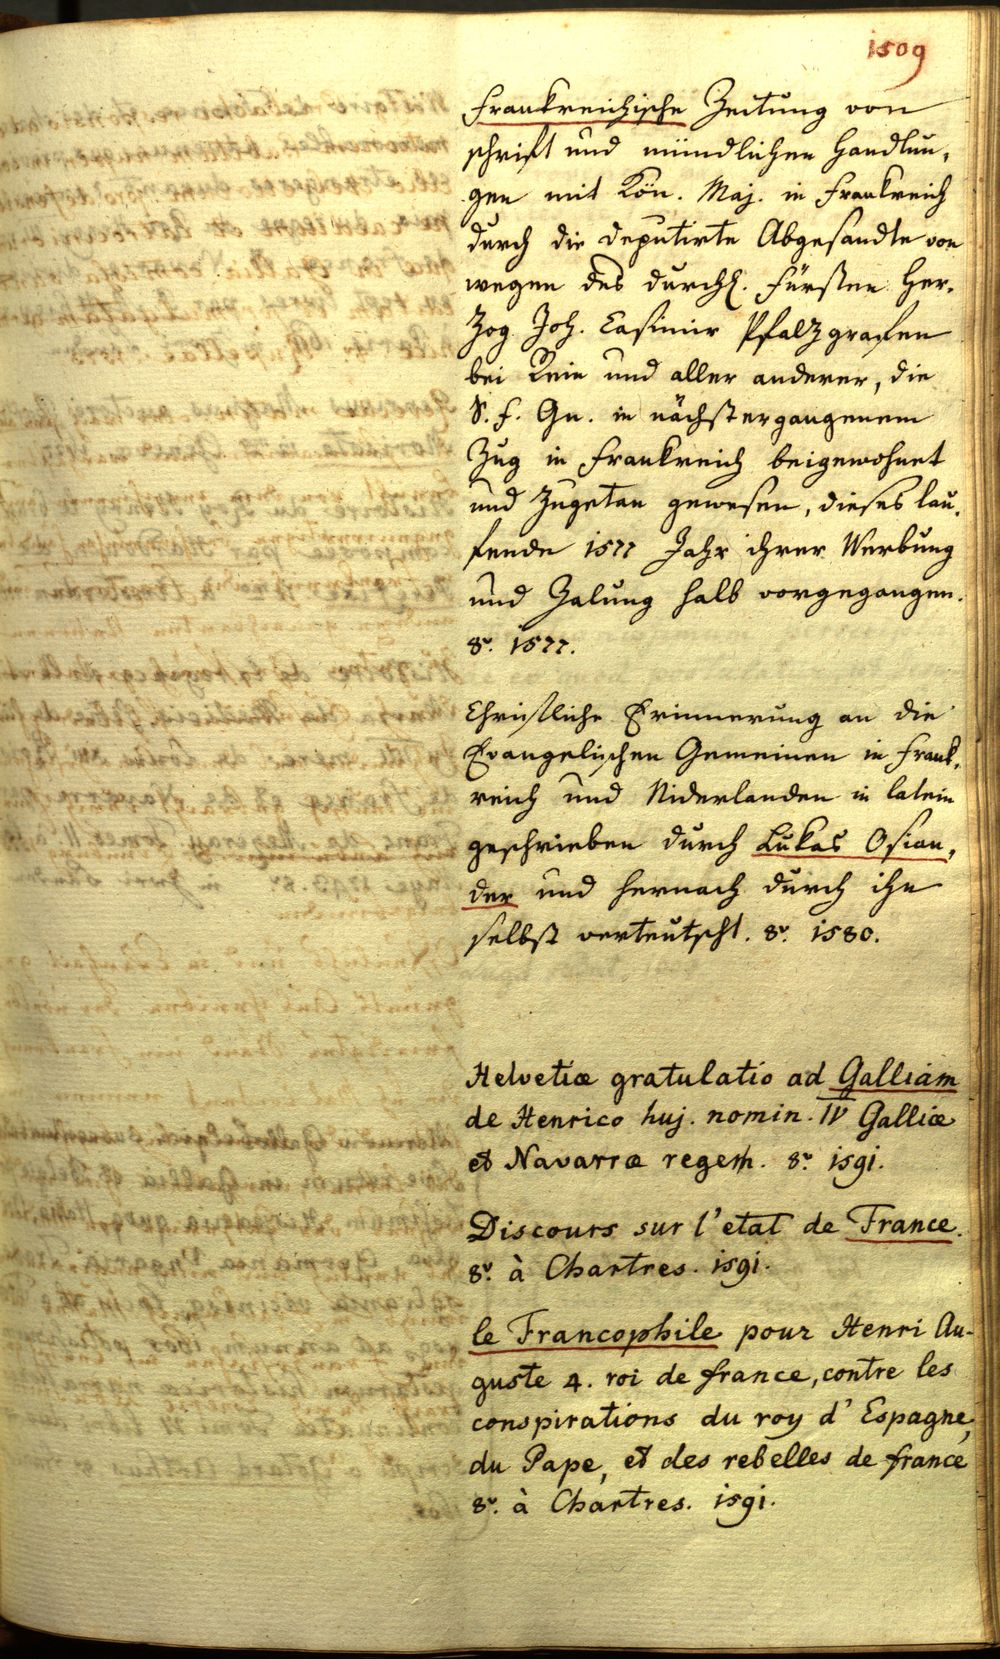 1509
Frankreichische Zeitung von
schrift und mündlichen Handlun,
gen mit Kön. Maj. in Frankreich
durch die deputirte Abgesandte von
wegen des durchl. Fürsten Her,
zog Joh. Casimir Pfalzgrafen
bei Rein und aller anderer, die
S. F. Gn. in nächstergangenem
Zug in Frankreich beigewohnet
und zugetan gewesen, dieses lau,
fende 1577 Jahr ihrer Werbung
und Zalung halb vorgegangen.
8º. 1577.
Christliche Erinnerung an die
Evangelischen Gemeinen in Frank,
reich und Niderlanden in latein
geschrieben durch Lukas Osian,
der und hernach durch ihn
selbst verteutscht. 8º. 1580.
Helvetiæ gratulatio ad Galliam
de Henrico huj. nomin. IV Galliæ
et Navarræ regem. 8º. 1591.
Discours sur l'etat de France.
8º. à Chartres. 1591.
le Francophile pour Henri Au-
guste 4. roi de france, contre les
conspirations du roy d'Espagne,
du Pape, et des rebelles de france
8º. à Chartres. 1591.